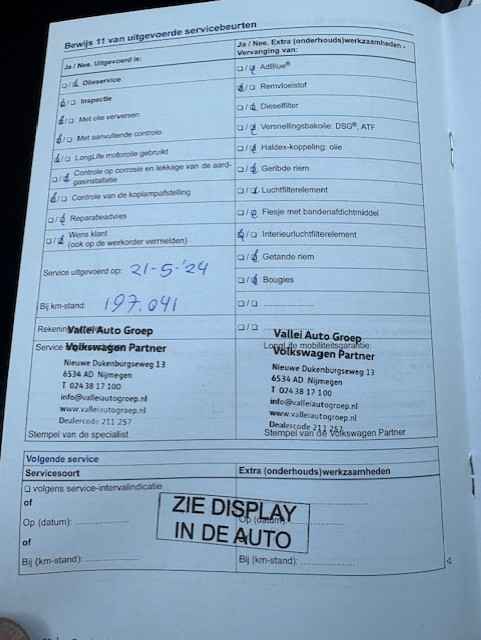 Bewijs 11 van uitgevoerde servicebeurten
Ja / Nee. Uitgevoerd is:
Olieservice
Inspectie
Met olie verversen
Met aanvullende controle
LongLife motorolie gebruikt
Controle op corrosie en lekkage van de aard-
gasinstallatie
Controle van de koplampafstelling
Reparatieadvies
Wens klant
(ook op de werkorder vermelden)
Service uitgevoerd op: 21-5-'24
Bij km-stand: 197.041
Ja / Nee. Extra (onderhouds)werkzaamheden -
Vervanging van:
AdBlue®
Remvloeistof
Dieselfilter
Versnellingsbakolie: DSG®, ATF
Haldex-koppeling: olie
Geribde riem
Luchtfilterelement
Flesje met bandenafdichtmiddel
Interieurluchtfilterelement
Getande riem
Bougies
Vallei Auto Groep
Volkswagen Partner
Nieuwe Dukenburgseweg 13
6534 AD Nijmegen
T 024 38 17 100
info@valleiautogroep.nl
www.valleiautogroep.nl
Dealercode 211 257
Stempel van de specialist
Vallei Auto Groep
LongLife mobiliteitsgarantie:
Volkswagen Partner
Nieuwe Dukenburgseweg 13
6534 AD Nijmegen
T 024 38 17 100
info@valleiautogroep.nl
www.valleiautogroep.nl
Dealercode 211 257
Stempel van de Volkswagen Partner
Volgende service
Servicesoort
Extra (onderhouds)werkzaamheden
volgens service-intervalindicatie
of
Op (datum):
Op (datum):
of
Bij (km-stand):
Bij (km-stand):
ZIE DISPLAY
IN DE AUTO